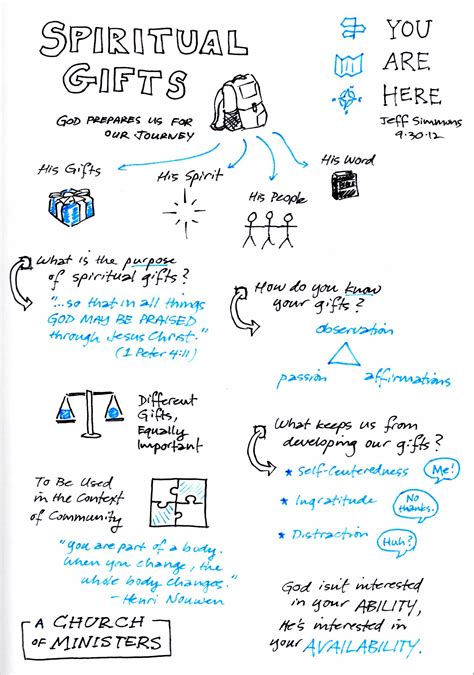 SPIRITUAL
GIFTS
GOD PREPARES US FOR
OUR JOURNEY
YOU
ARE
HERE
Jeff Simmons
9.30.12
His Gifts
His Spirit
His People
His Word
BIBLE
What is the purpose
of spiritual gifts?
"...so that in all things
GOD MAY BE PRAISED
through Jesus Christ."
(1 Peter 4:11)
Different
Gifts,
Equally
Important
To Be Used
in the Context
of Community
"you are part of a body.
When you change, the
whole body changes."
- Henri Nouwen
A CHURCH
OF MINISTERS
How do you know
your gifts?
observation
passion
affirmations
What keeps us from
developing our gifts?
* Self-Centeredness
Me!
* Ingratitude
No
thanks.
* Distraction
Huh?
God isn't interested
in your ABILITY,
He's interested in
your AVAILABILITY.